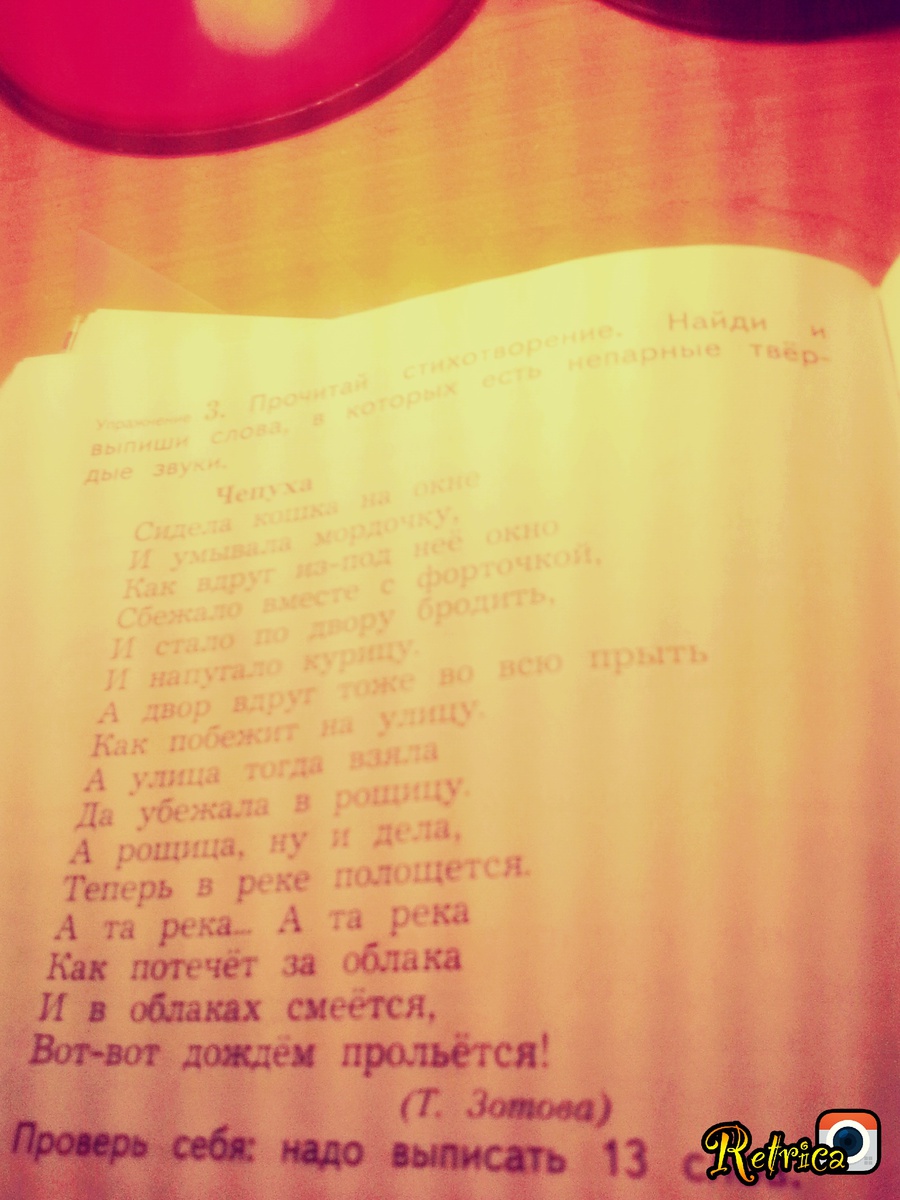 Упражнение 3. Прочитай стихотворение. Найди и
выпиши слова, в которых есть непарные твёр-
дые звуки.
Чепуха
Сидела кошка на окне
И умывала мордочку,
Как вдруг из-под неё окно
Сбежало вместе с форточкой,
И стало по двору бродить,
И напугало курицу.
А двор вдруг тоже во всю прыть
Как побежит на улицу.
А улица тогда взяла
Да убежала в рощицу.
А рощица, ну и дела,
Теперь в реке полощется.
А та река... А та река
Как потечёт за облака
И в облаках смеётся,
Вот-вот дождём прольётся!
(Т. Зотова)
Проверь себя: надо выписать 13
Retrica